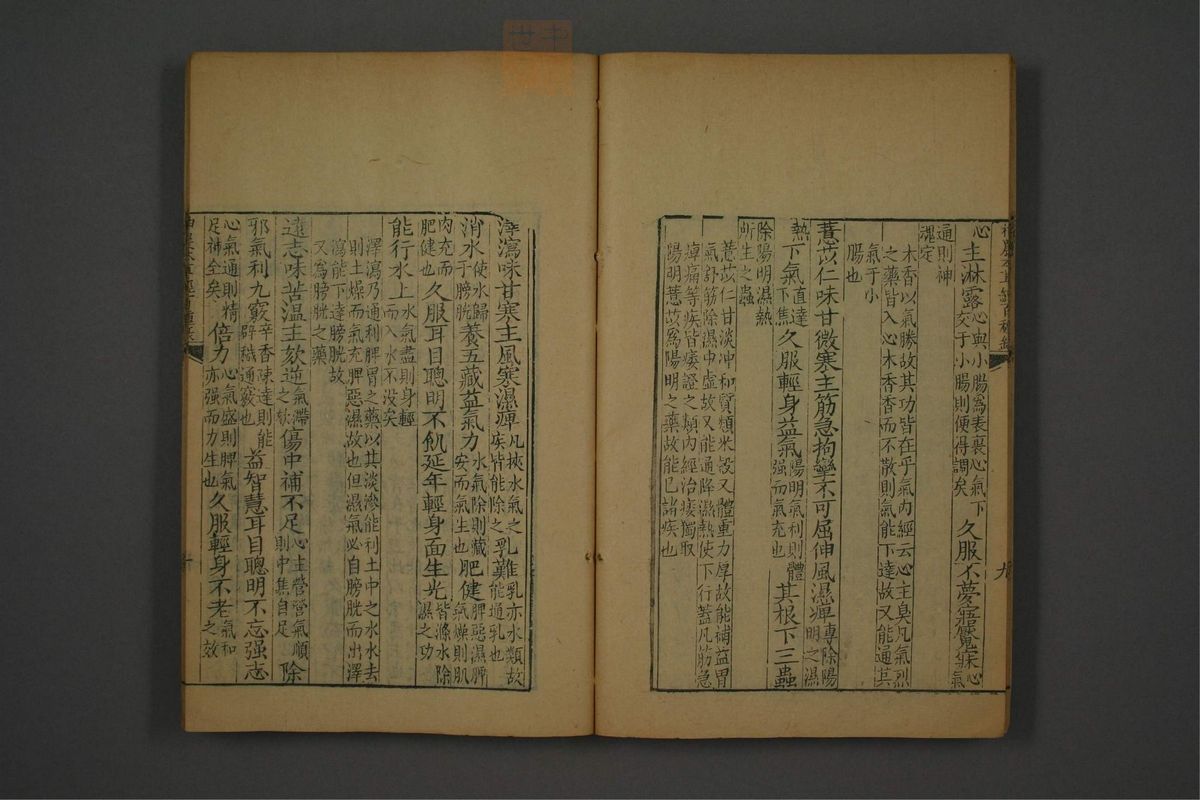 心主淋露心與小腸爲表裏心氣下交于小腸則便得調矣久服不夢寤魘寐心氣
通則神魂定
木香以氣勝故其功皆在乎氣內經云心主臭凡氣烈
之藥皆入心木香香而不散則氣能下達故又能通其
氣于小
腸也
薏苡仁味甘微寒主筋急拘攣不可屈伸風濕痺專除陽明之濕
熱下氣直達下焦久服輕身益氣陽明氣利則體強而氣充也其根下三蟲
除陽明濕熱所生之蟲
薏苡仁甘淡沖和質類米穀又體重力厚故能補益胃
氣舒筋除濕中虛故又能通降濕熱使下行蓋凡筋急
痺痛等疾皆痿證之類內經治痿獨取
陽明薏苡爲陽明之藥故能已諸疾也
九
澤瀉味甘寒主風寒濕痺凡挾水氣之疾皆能除之乳難乳亦水類故能通乳也
消水使水歸于膀胱養五藏益氣力水氣除則藏安而氣生也肥健脾惡濕脾氣燥則肌
肉充而肥健也久服耳目聰明不飢延年輕身面生光皆滌水除濕之功
能行水上水氣盡則身輕而入水不沒矣
澤瀉乃通利脾胃之藥以其淡滲能利土中之水水去
則土燥而氣充脾惡濕故也但濕氣必自膀胱而出澤
瀉能下達膀胱故
又爲膀胱之藥
遠志味苦溫主欬逆氣滯之欬傷中補不足心主營營氣順則中焦自足除
邪氣利九竅辛香疎達則能辟穢通竅也益智慧耳目聰明不忘强志
心氣通則精足神全矣倍力心氣盛則脾氣亦强而力生也久服輕身不老氣和之效